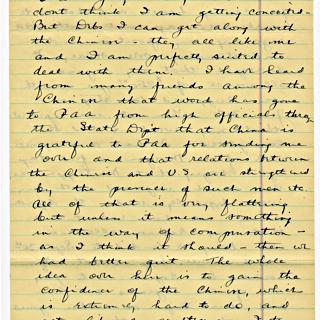 dont think I am getting conceited -
But Debs I can get along with
the Chinese - they all like me
and I am perfectly suited to
deal with them. I have heard
from many friends among the
Chinese that word has gone
to PAA from high officials through
the State Dept that China is
grateful to PAA for sending me
over and that relations between
the Chinese and U.S. are strengthened
by the presence of such men etc.
All of that is very flattering
but unless it means something
in the way of compensation -
as I think it should - then we
had better quit. The whole
idea over here is to gain the
confidence of the Chinese, which
is extremely hard to do, and